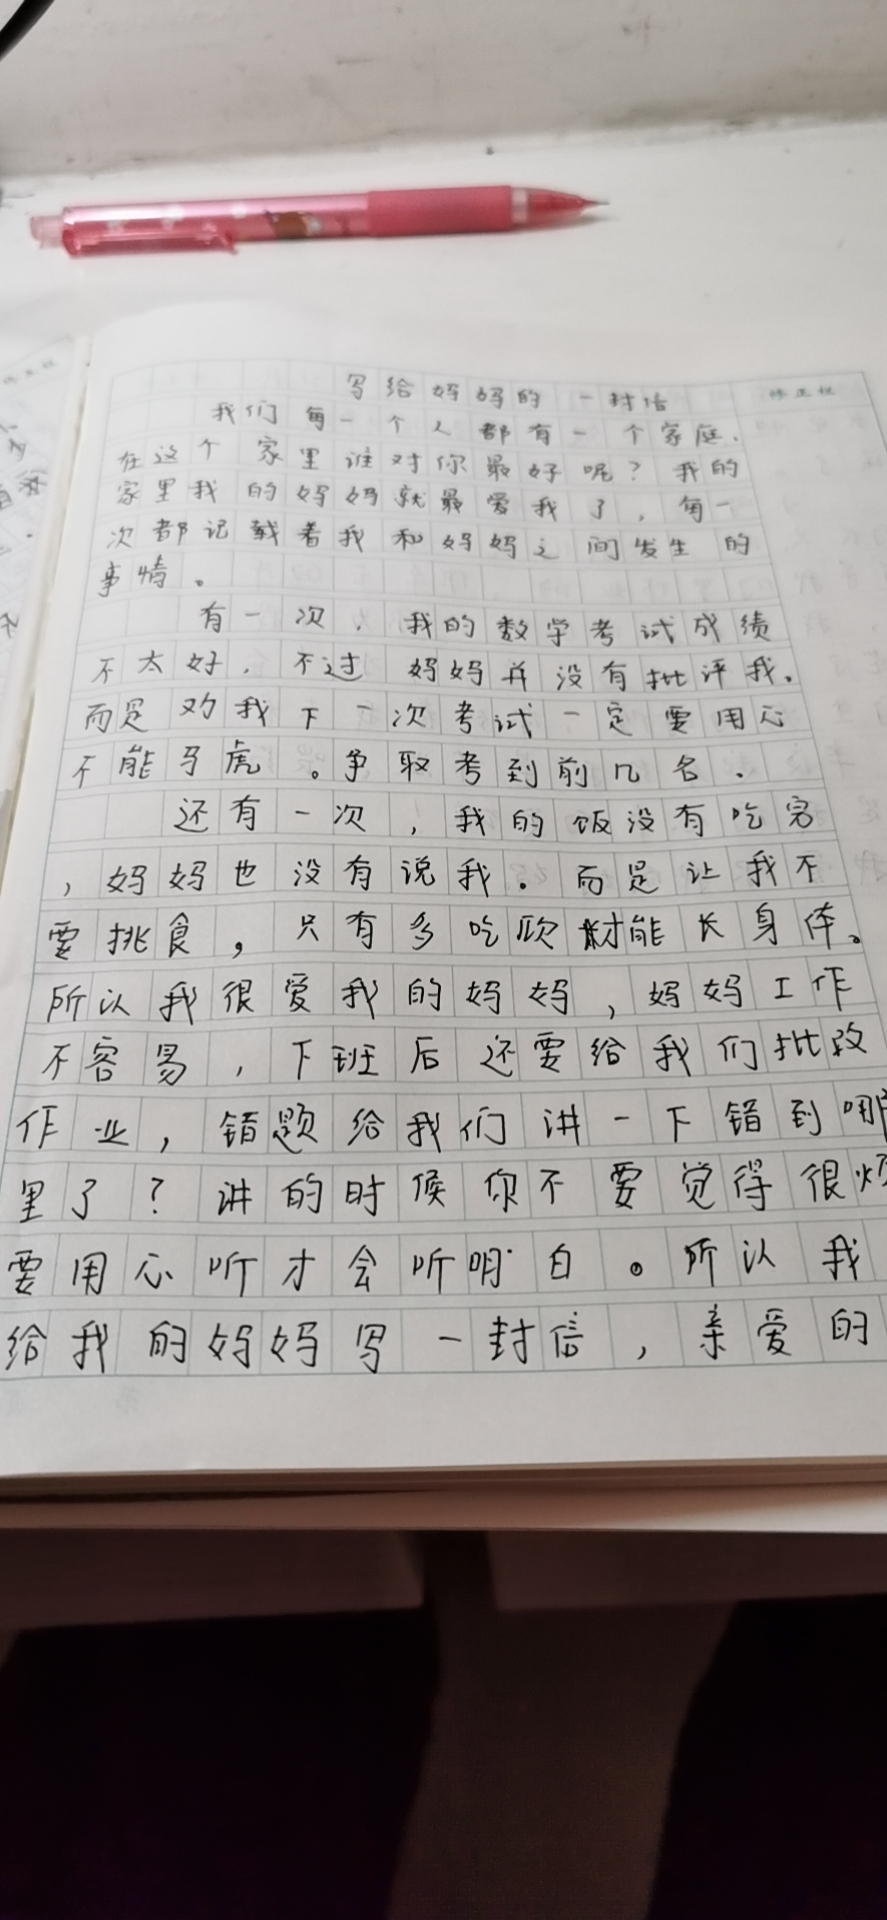 写给妈妈的一封信
修正栏
我们每一个人都有一个家庭.
在这个家里谁对你最好呢?我的
家里我的妈妈就最爱我了,每一
次都记载着我和妈妈之间发生的
事情。
有一次,我的数学考试成绩
不太好,不过妈妈并没有批评我.
而是对我下一次考试一定要用心
不能马虎。争取考到前几名.
还有一次,我的饭没有吃完
,妈妈也没有说我。而是让我不
要挑食,只有多吃饭才能长身体。
所以我很爱我的妈妈,妈妈工作
不容易,下班后还要给我们批改
作业,错题给我们讲一下错到哪
里了?讲的时候你不要觉得很烦
要用心听才会听明白。所以我
给我的妈妈写一封信,亲爱的